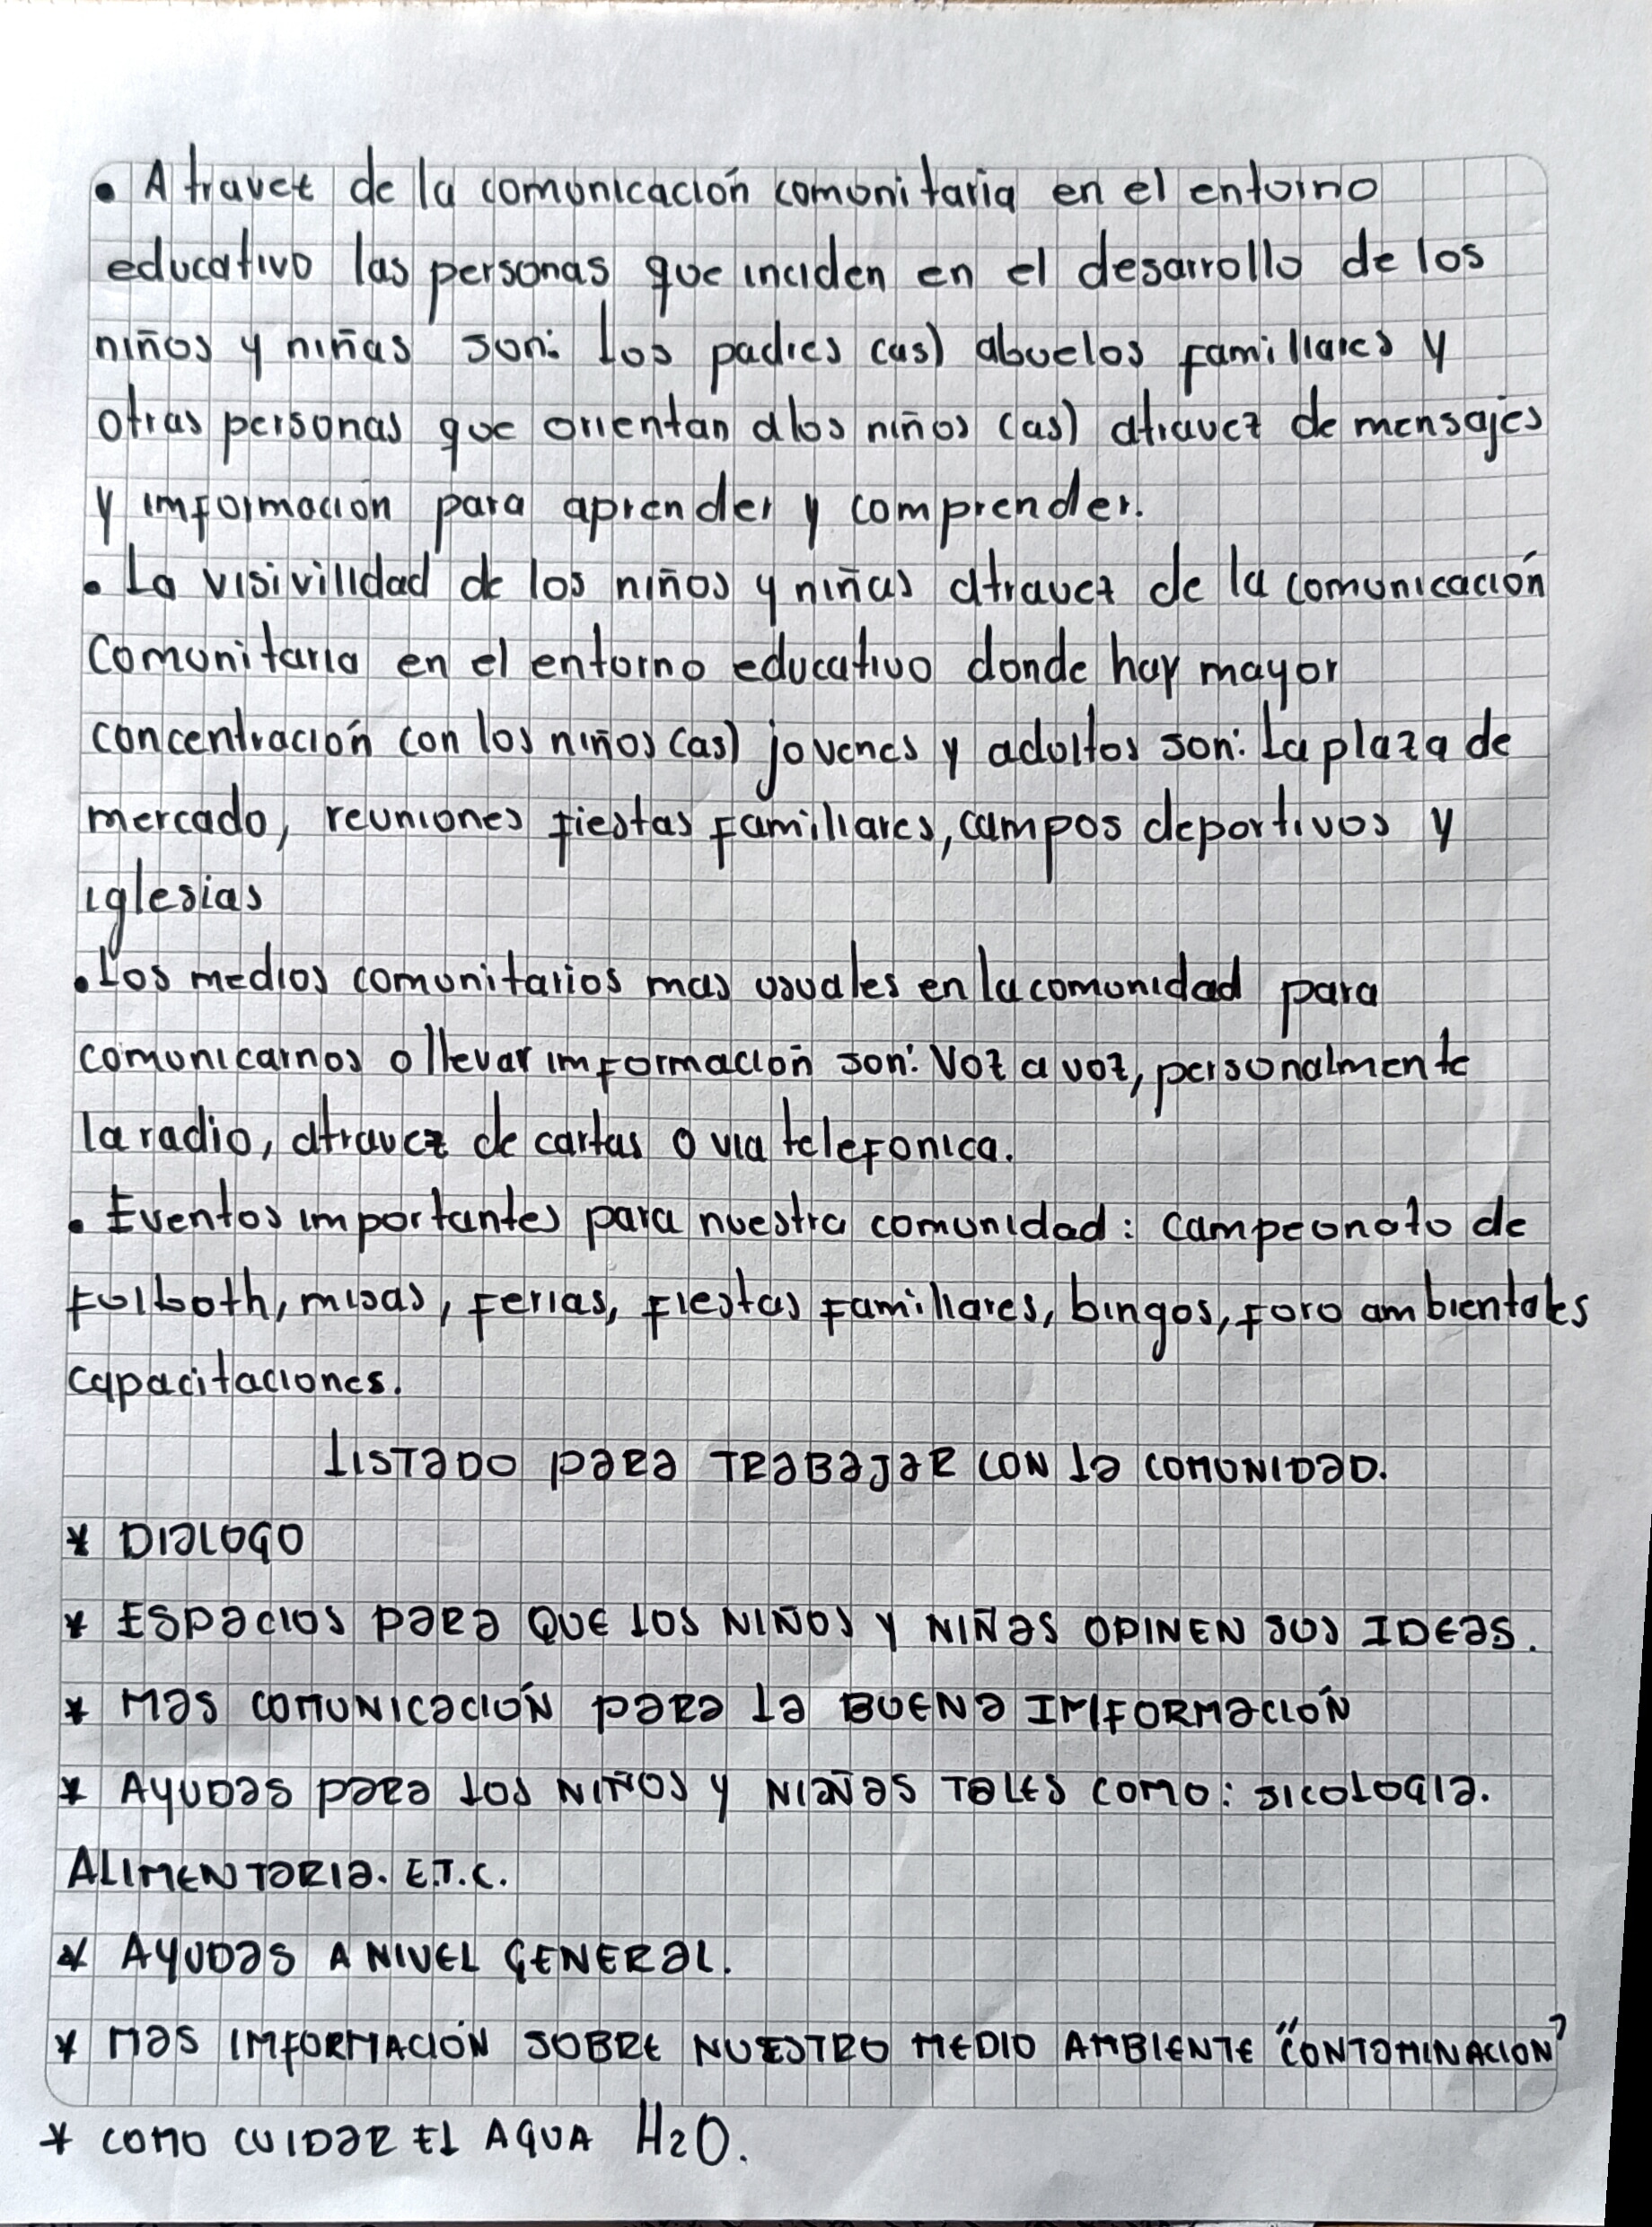 • A travez de la comunicación comunitaria en el entorno
educativo las personas que inciden en el desarrollo de los
niños y niñas son: los padres (as) abuelos familiares y
otras personas que orientan a los niños (as) atravez de mensajes
y imformación para aprender y comprender.
• La visivilidad de los niños y niñas atravez de la comunicación
Comunitaria en el entorno educativo donde hay mayor
concentración con los niños (as) jovenes y adultos son: La plaza de
mercado, reuniones fiestas familiares, campos deportivos y
iglesias
• Los medios comunitarios mas usuales en la comunidad para
comunicarnos o llevar imformación son: Voz a voz, personalmente
la radio, atravez de cartas o via telefonica.
• Eventos importantes para nuestra comunidad: campeonato de
futboth, misas, ferias, fiestas familiares, bingos, foro ambientales
capacitaciones.
LISTADO PARA TRABAJAR CON LA COMUNIDAD.
* DIALOGO
* ESPACIOS PARA QUE LOS NIÑOS Y NIÑAS OPINEN SUS IDEAS.
* MAS COMUNICACIÓN PARA LA BUENA IMFORMACIÓN
* AYUDAS PARA LOS NIÑOS Y NIAÑAS TALES COMO: SICOLOGIA.
ALIMENTARIA. E.T.C.
* AYUDAS A NIVEL GENERAL.
* MAS IMFORMACIÓN SOBRE NUESTRO MEDIO AMBIENTE "CONTAMINACION"
* COMO CUIDAR EL AGUA H2O.